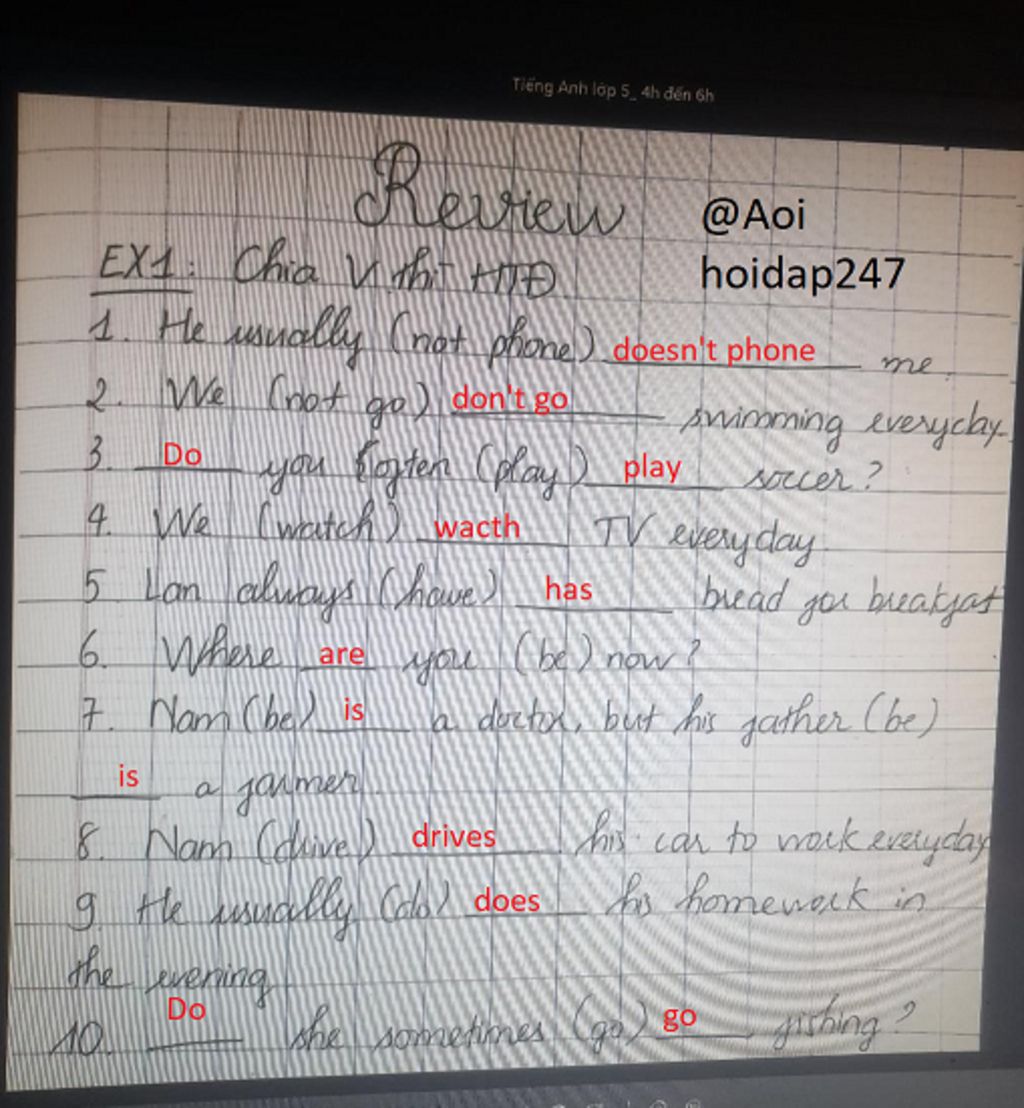 Tiếng Anh lớp 5_ 4h đến 6h
Review
@Aoi
hoidap247
EX1: Chia V thì HTĐ
1. He usually (not phone) doesn't phone me.
2. We (not go) don't go swimming everyday.
3. Do you often (play) play soccer?
4. We (watch) wacth TV everyday
5 Lan always (have) has bread for breakfast
6. Where are you (be) now?
7. Nam (be) is a doctor, but his father (be)
is a farmer.
8. Nam (drive) drives his car to work everyday
9 He usually (do) does his homework in
the evening
10. Do she sometimes (go) go fishing?